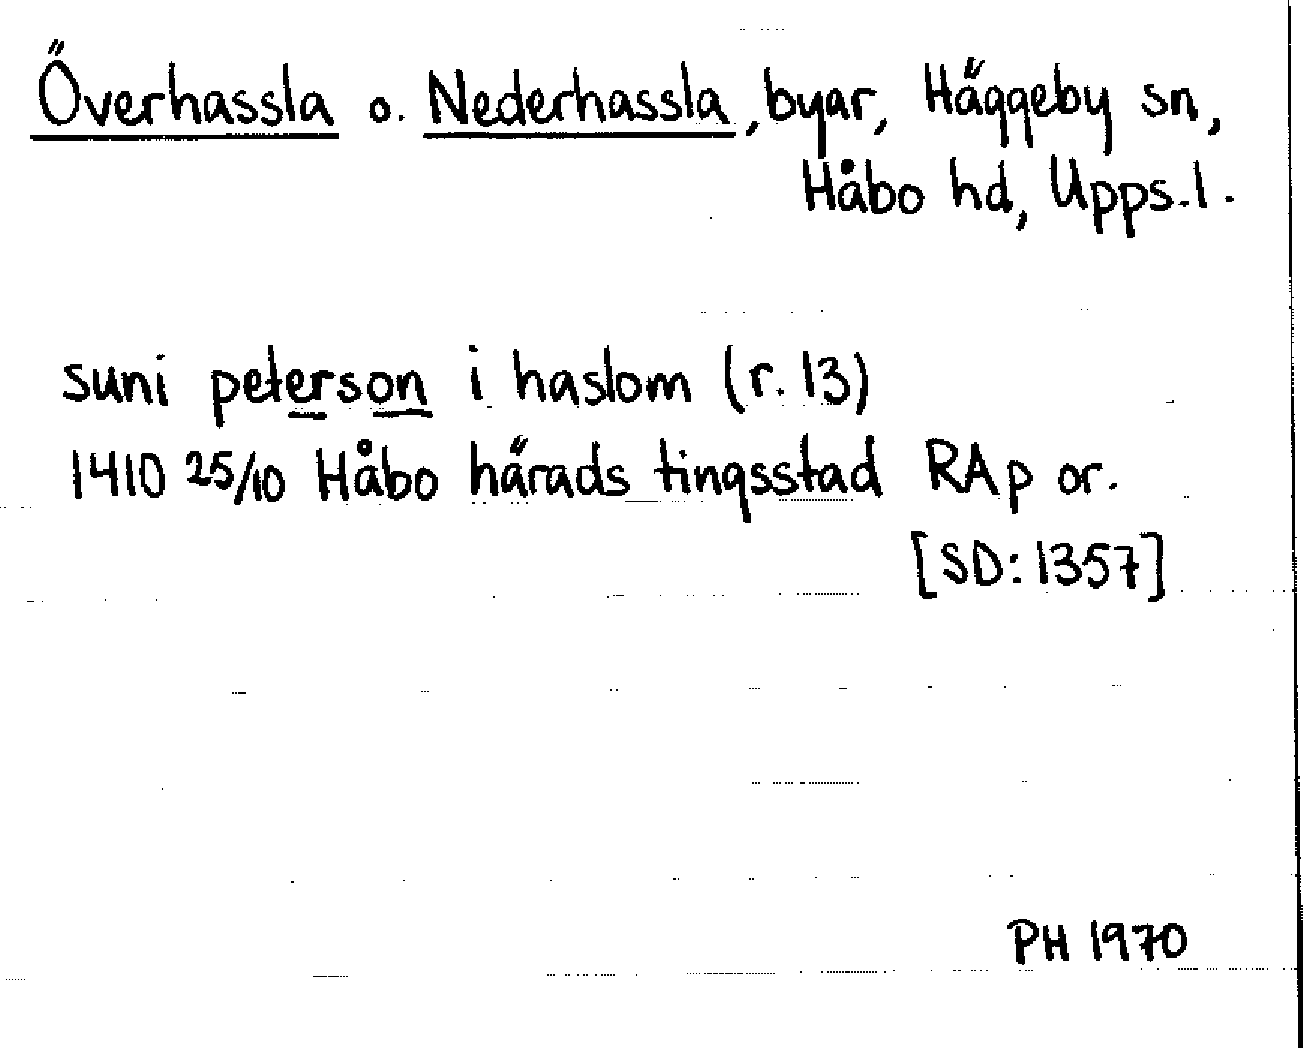 Överhassla o. Nederhassla, byar, Häggeby sn,
Håbo hd, Upps. l.
suni peterson i haslom (r. 13)
1410 25/10 Håbo härads tingsstad RAp or.
[SD: 1357]
PH 1970